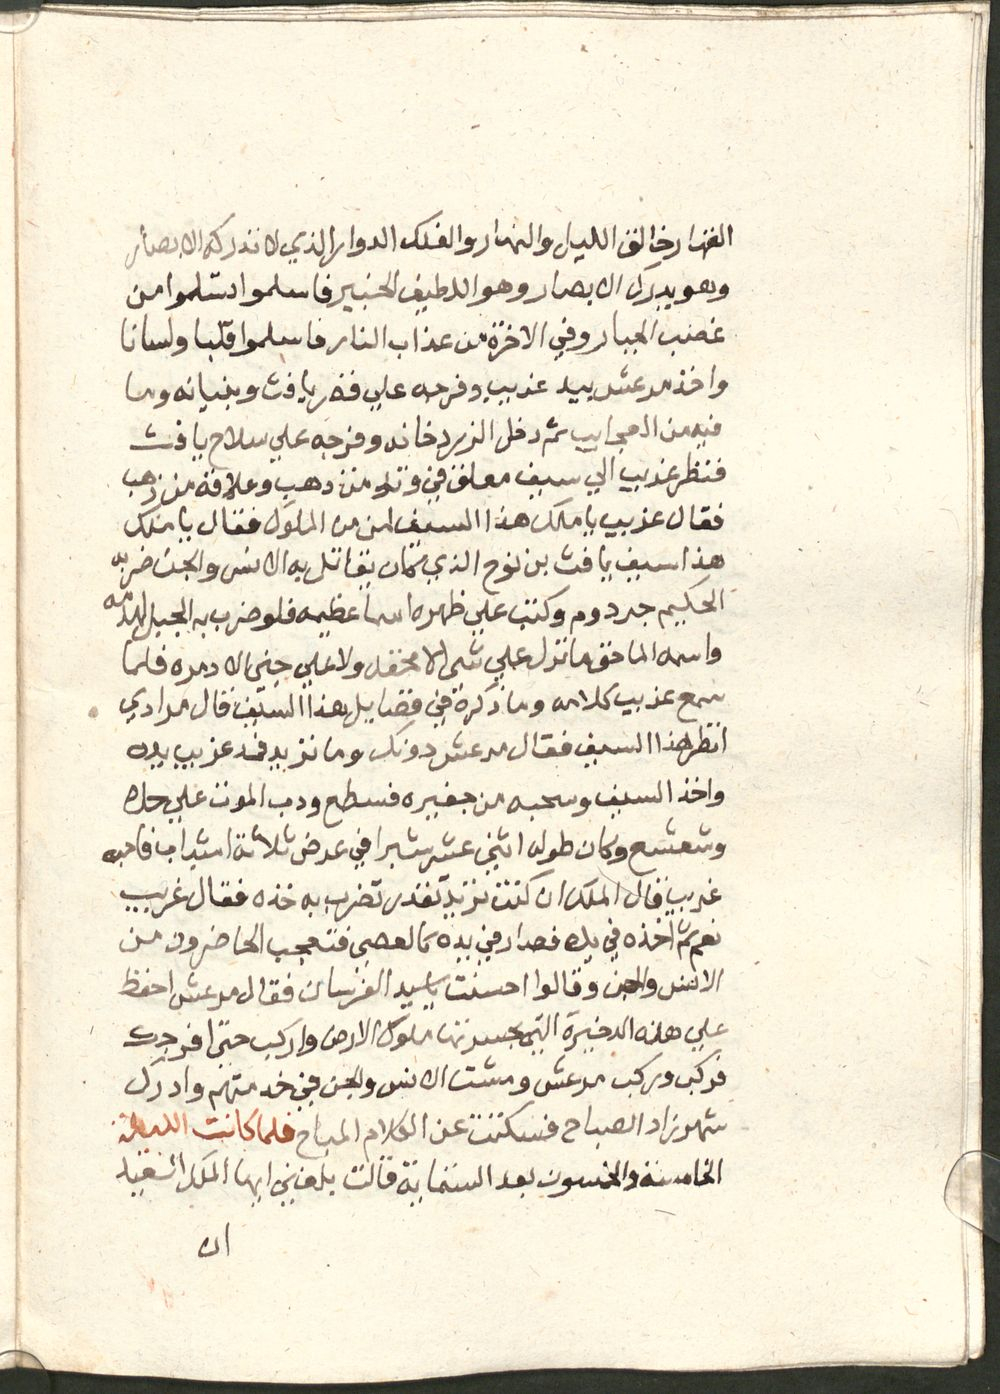 القهار خالق الليل والنهار والفلك الدوار الذي لا تدركه الابصار
وهو يدرك الابصار وهو اللطيف الخبير فاسلموا تسلموا من
غضب الجبار وفي الاخرة من عذاب النار فاسلموا قلبا ولسانا
واخذ مرعش بيد غريب وفرجه علي قصر يافث وبنيانه وما
فيه من العجايب ثم دخل الزردخانه وفرجه علي سلاح يافث
فنظر غريب الي سيف معلق في وتد من دهب وعلاقة من ذهب
فقال غريب يا ملك هذا السيف لمن من الملوك فقال يا ملك
هذا سيف يافث بن نوح الذي كان يقاتل به الانس والجن ضربه
الحكيم جردوم وكتب علي ظهره اسما عظيمه فلو ضرب به الجبل لهدمه
واسمه الماحق ما نزل علي شى الا محقه ولا علي جنى الا دمره فلما
سمع غريب كلامه وما ذكره في فضايل هذا السيف قال مرادي
انظر هذا السيف فقال مرعش دونك وما تريد فمد غريب يده
واخذ السيف وسحبه من جفيره فسطع ودب الموت علي حده
وشعشع وكان طوله اثني عشر شبرا في عرض ثلاثة اشبار فاحبه
غريب قال الملك ان كنت تريد تقدر تضرب به خذه فقال غريب
نعم ثم اخذه في يده فصار في يده كالعصى فتعجب الحاضرون من
الانس والجن وقالوا احسنت يا سيد الفرسان فقال مرعش احفظ
علي هذه الدخيرة التي بحسرتها ملوك الارض واركب حتى افرجك
فركب وركب مرعش ومشت الانس والجن في خدمتهم وادرك
شهرزاد الصباح فسكتت عن الكلام المباح فلما كانت الليلة
الخامسة والخمسون بعد الستماية قالت بلغني ايها الملك السعيد
ان